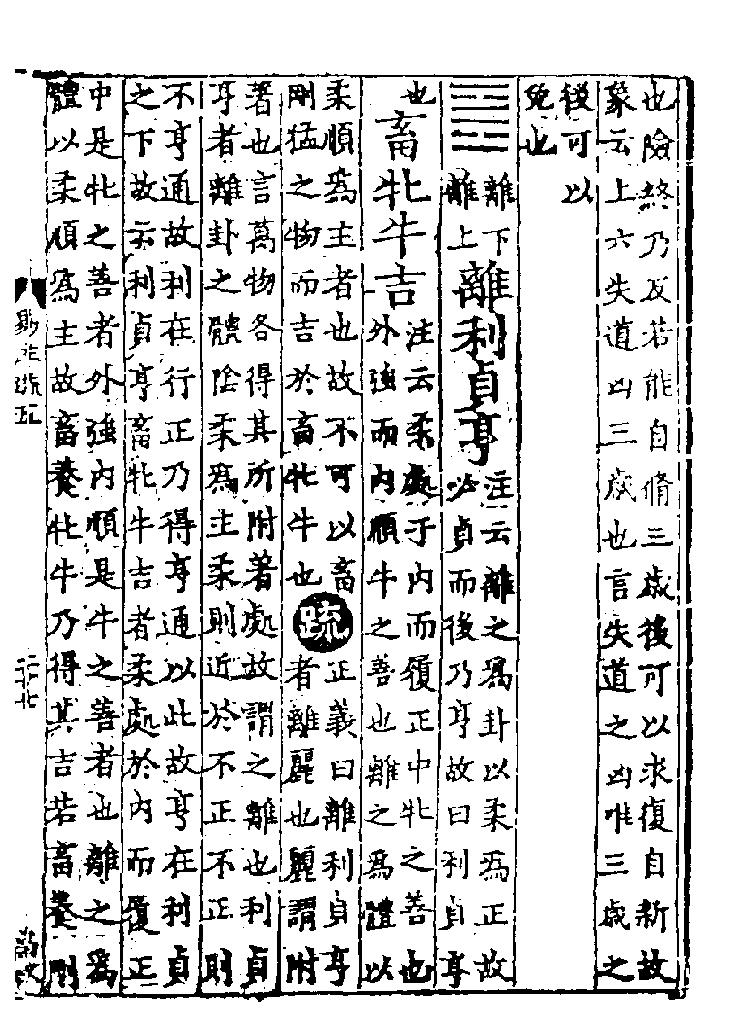 也險終乃反若能自脩三歲後可以求復自新故
象云上六失道凶三歲也言失道之凶唯三歲之
後可以
免也
䷝
離下
離上
離利貞亨
注云離之爲卦以柔爲正故
必貞而後乃亨故曰利貞亨
也
畜牝牛吉
注云柔處于內而履正中牝之善也
外強而內順牛之善也離之爲體以
柔順爲主者也故不可以畜
剛猛之物而吉於畜牝牛也
疏
正義曰離利貞亨
者離麗也麗謂附
著也言萬物各得其所附著處故謂之離也利貞
亨者離卦之體陰柔爲主柔則近於不正不正則
不亨通故利在行正乃得亨通以此故亨在利貞
之下故云利貞亨畜牝牛吉者柔處於內而履正
中是牝之善者外強內順是牛之善者也離之爲
體以柔順爲主故畜養牝牛乃得其吉若畜養剛